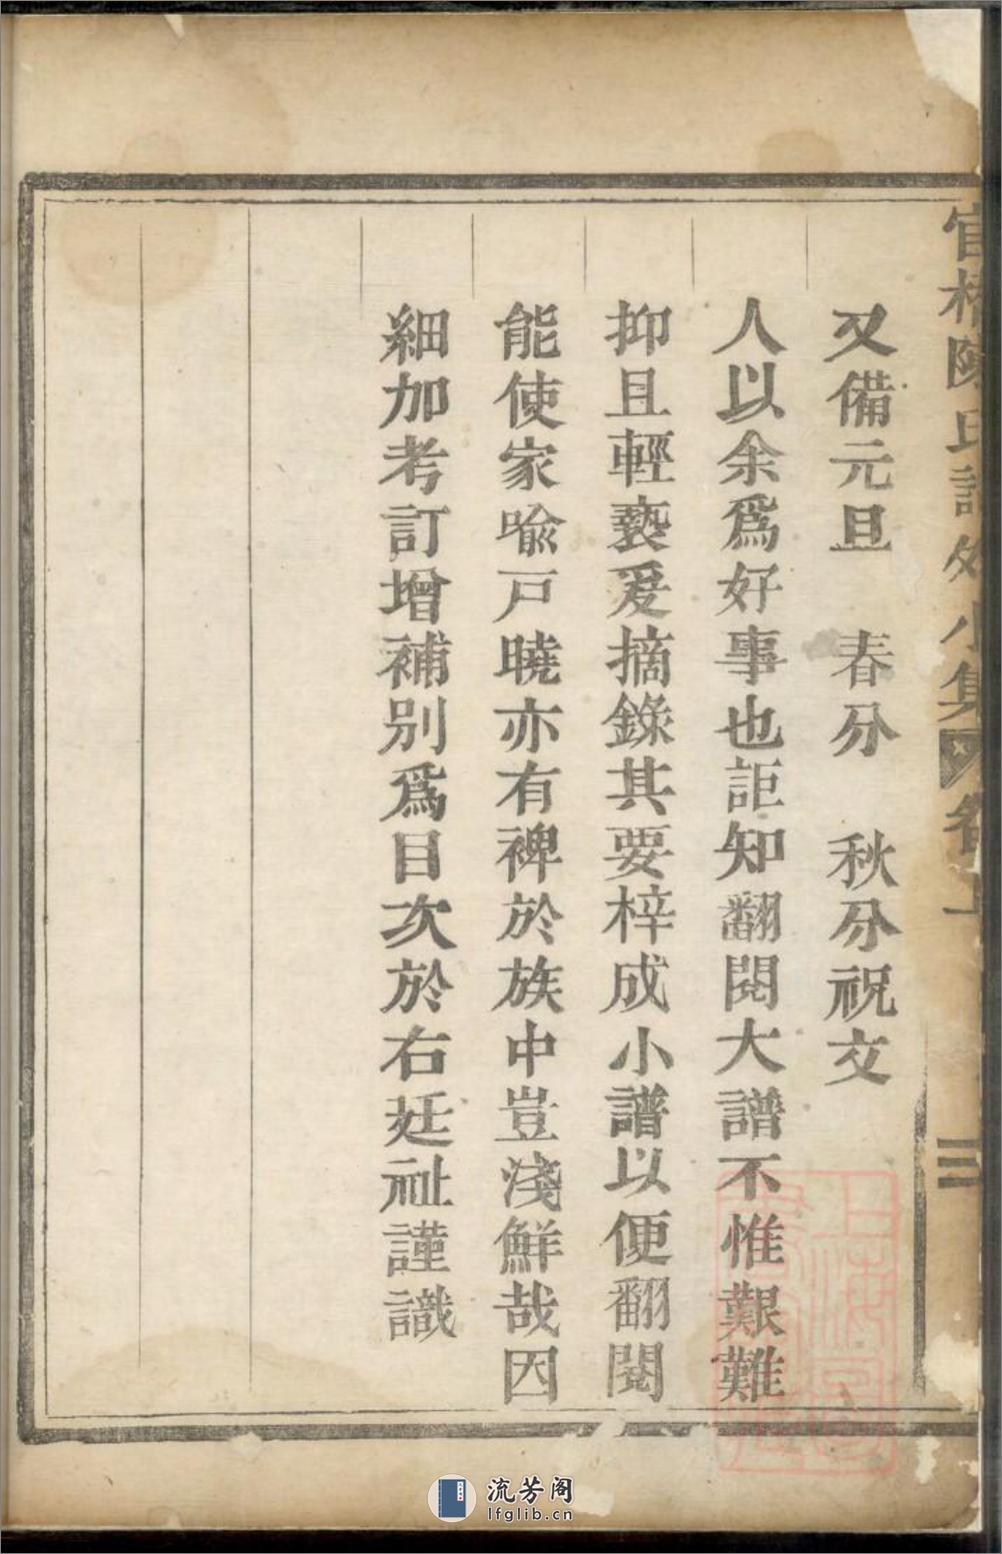 又備元旦　春分　秋分祝文
人以余為好事也詎知翻閱大譜不惟艱難
抑且輕褻爰摘錄其要梓成小譜以便翻閱
能使家喻戶曉亦有裨於族中豈淺鮮哉因
細加考訂增補別為目次於右廷祉謹識
陳氏譜外小集
流芳阁
lfglib.cn